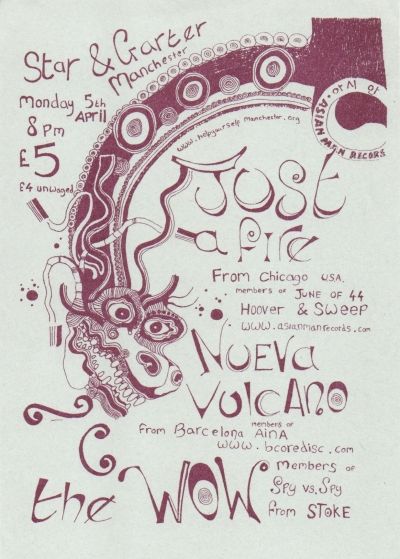 Star & Garter
Manchester
Monday 5th
April
8 pm
£5
£4 unwaged
www.helpyourself manchester.org
ASIAN MAN RECORS
Just
a fire
From Chicago U.S.A.
members of JUNE OF 44
Hoover & SWEEP
www.asianmanrecords.com
NUEVA
VULCANO
from Barcelona members of AINA
www.bcoredisc.com
the WOW
members of
Spy vs. Spy
from STOKE